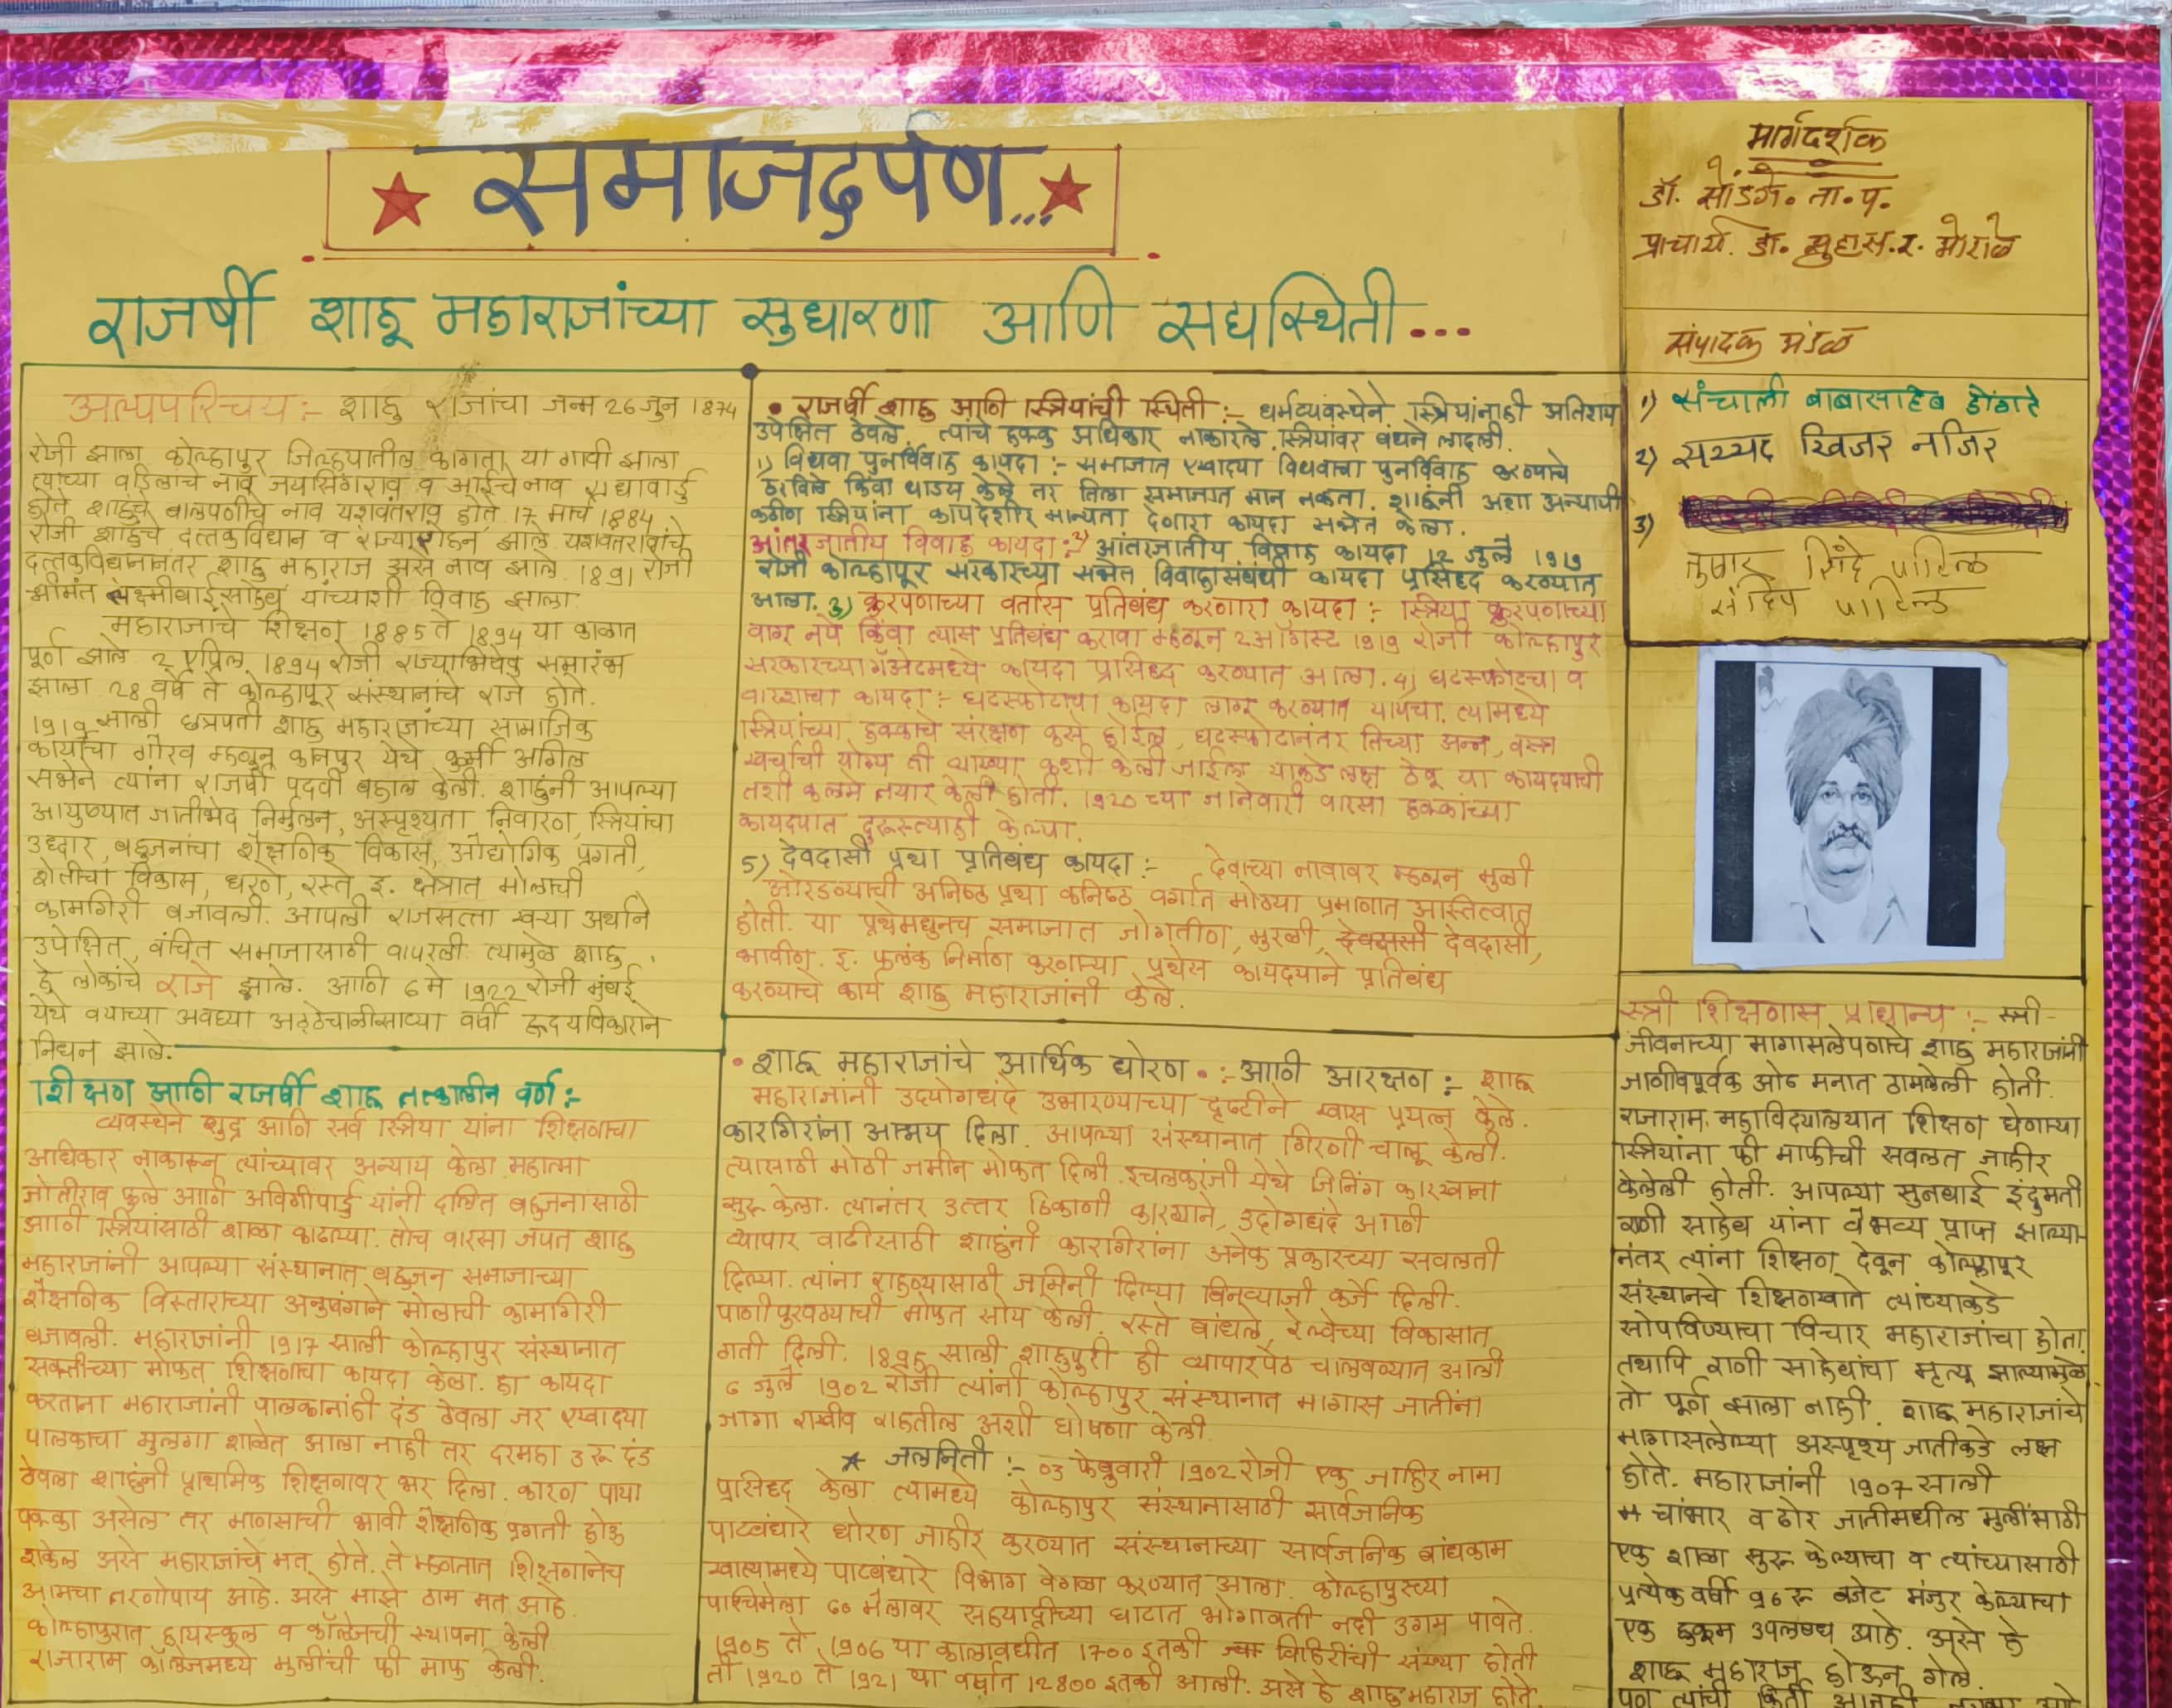 समाजदर्पण...
राजर्षी शाहू महाराजांच्या सुधारणा आणि सद्यस्थिती...
मार्गदर्शक
डॉ. सोंडगे. ता. प.
प्राचार्य. डॉ. सुहास. र. मोराळे
संपादक मंडळ
1) संचाली बाबासाहेब डोंगरे
2) सय्यद खिजर नजिर
3)
तुषार शिंदे पाटिल
संदिप पाटिल
अल्पपरिचय :- शाहु राजांचा जन्म 26 जुन 1874
रोजी झाला कोल्हापुर जिल्हयातील कागल या गावी झाला
त्यांच्या वडिलांचे नाव जयसिंगराव व आईचे नाव राधाबाई
होते शाहुंचे बालपणीचे नाव यशवंतराव होते. 17 मार्च 1884
रोजी शाहुंचे दत्तकविधान व राज्यारोहन झाले. यशवंतरावांचे
दत्तकविधानानंतर शाहु महाराज असे नाव झाले. 1891 रोजी
श्रीमंत लक्ष्मीबाई साहेब यांच्याशी विवाह झाला.
महाराजांचे शिक्षण 1885 ते 1894 या काळात
पूर्ण झाले. 2 एप्रिल 1894 रोजी राज्याभिषेक समारंभ
झाला. 28 वर्षे ते कोल्हापूर संस्थानाचे राजे होते.
1919 साली छत्रपती शाहु महाराजांच्या सामाजिक
कार्याचा गौरव म्हणून कानपुर येथे कुर्मी
सभेने त्यांना राजर्षी पदवी बहाल केली. शाहुंनी आपल्या
आयुष्यात जातीभेद निर्मुलन, अस्पृश्यता निवारण, स्त्रियांचा
उध्दार, बहुजनांचा शैक्षणिक विकास, औद्योगिक प्रगती,
शेतीचा विकास, धरणे, रस्ते इ. क्षेत्रात मोलाची
कामगिरी बजावली. आपली राजसत्ता खऱ्या अर्थाने
उपेक्षित, वंचित समाजासाठी वापरली त्यामुळे शाहु
हे लोकांचे राजे झाले. आणि 6 मे 1922 रोजी मुंबई
येथे वयाच्या अवघ्या अठ्ठेचाळीसाव्या वर्षी हृदयविकाराने
निधन झाले.
शिक्षण आणि राजर्षी शाहू तत्कालीन वर्ण :-
व्यवस्थेने शुद्र आणि सर्व स्त्रिया यांना शिक्षणाचा
अधिकार नाकारून त्यांच्यावर अन्याय केला. महात्मा
जोतीराव फुले आणि यांनी दलित बहुजनांसाठी
आणि स्त्रियांसाठी शाळा काढल्या. तोच वारसा जपत शाहु
महाराजांनी आपल्या संस्थानात बहुजन समाजाच्या
शैक्षणिक विस्ताराच्या अनुषंगाने मोलाची कामगिरी
बजावली. महाराजांनी 1917 साली कोल्हापुर संस्थानात
सक्तीच्या मोफत शिक्षणाचा कायदा केला. हा कायदा
करताना महाराजांनी पालकांनाही दंड ठेवला जर एखाद्या
पालकाचा मुलगा शाळेत आला नाही तर दरमहा 3 रू दंड
ठेवला शाहुंनी प्राथमिक शिक्षणावर भर दिला. कारण पाया
पक्का असेल तर माणसाची भावी शैक्षणिक प्रगती होऊ
शकेल असे महाराजांचे मत होते. ते म्हणतात शिक्षणानेच
आमचा तरणोपाय आहे. असे माझे ठाम मत आहे.
कोल्हापुरात हायस्कुल व कॉलेजची स्थापना केली
राजाराम कॉलेजमध्ये मुलींची फी माफ केली.
• राजर्षी शाहु आणि स्त्रियांची स्थिती :- धर्मव्यवस्थेने स्त्रियांनाही अतिशय
उपेक्षित ठेवले. त्यांचे हक्क अधिकार नाकारले. स्त्रियांवर बंधने लादली.
1) विधवा पुनर्विवाह कायदा :- समाजात एखादया विधवाचा पुनर्विवाह करण्याचे
ठरविले किंवा धाडस केले तर तिला समाजात मान नव्हता. शाहूंनी अशा अन्यायी
स्त्रियांना कायदेशीर मान्यता देणारा कायदा संमत केला.
आंतरजातीय विवाह कायदा :- 2) आंतरजातीय विवाह कायदा 12 जुलै 1919
रोजी कोल्हापूर सरकारच्या सभेत विवाहासंबंधी कायदा प्रसिध्द करण्यात
आला. 3) क्रुरपणाच्या वर्तास प्रतिबंध करणारा कायदा :- स्त्रिया क्रुरपणाच्या
वागू नये किंवा त्यास प्रतिबंध करावा म्हणून 2 ऑगस्ट 1919 रोजी कोल्हापुर
सरकारच्या गॅझेटमध्ये कायदा प्रसिध्द करण्यात आला. 4) घटस्फोटचा व
वारशाचा कायदा :- घटस्फोटाचा कायदा लागू करण्यात यायचा. त्यामध्ये
स्त्रियांच्या हक्काचे संरक्षण कसे होईल, घटस्फोटानंतर तिच्या अन्न, वस्त्र
खर्चाची योग्य ती व्याख्या कशी केली जाईल याकडे लक्ष ठेवू या कायदयाची
तशी कलमे तयार केली होती. 1920 च्या जानेवारी वारसा हक्कांच्या
कायदयात दुरूस्त्याही केल्या.
5) देवदासी प्रथा प्रतिबंध कायदा :- देवाच्या नावावर म्हणून मुली
सोडण्याची अनिष्ठ प्रथा कनिष्ठ वर्गात मोठया प्रमाणात अस्तित्वात
होती. या प्रथेमधुनच समाजात जोगतीण, मुरळी, देवदासी,
भावीण. इ. कलंक निर्माण करणाऱ्या प्रथेस कायदयाने प्रतिबंध
करण्याचे कार्य शाहु महाराजांनी केले.
• शाहू महाराजांचे आर्थिक धोरण • :- आणि आरक्षण :- शाहू
महाराजांनी उदयोगधंदे उभारण्याच्या दृष्टीने खास प्रयत्न केले.
कारागिरांना आश्रय दिला. आपल्या संस्थानात गिरणी चालू केली.
त्यासाठी मोठी जमीन मोफत दिली. इचलकरंजी येथे जिनिंग कारखाना
सुरू केला. त्यानंतर उत्तर ठिकाणी कारखाने, उद्योगधंदे आणि
व्यापार वाढीसाठी शाहुंनी कारागिरांना अनेक प्रकारच्या सवलती
दिल्या. त्यांना राहण्यासाठी जमिनी दिल्या बिनव्याजी कर्जे दिली.
पाणीपुरवठ्याची मोफत सोय केली. रस्ते बांधले, रेल्वेच्या विकासात
गती दिली. 1895 साली शाहुपुरी ही व्यापारपेठ चालवण्यात आली
6 जुलै 1902 रोजी त्यांनी कोल्हापुर संस्थानात मागास जातींना
जागा राखीव राहतील अशी घोषणा केली.
★ जलनिती :- 03 फेब्रुवारी 1902 रोजी एक जाहिरनामा
प्रसिध्द केला त्यामध्ये कोल्हापुर संस्थानासाठी सार्वजनिक
पाटबंधारे धोरण जाहीर करण्यात संस्थानाच्या सार्वजनिक बांधकाम
खात्यामध्ये पाटबंधारे विभाग वेगळा करण्यात आला. कोल्हापुरच्या
पश्चिमेला 60 मैलावर सहयाद्रीच्या घाटात भोगावती नदी उगम पावते.
1905 ते 1906 या कालावधीत 1700 इतकी विहिरींची संख्या होती
ती 1920 ते 1921 या वर्षात 12800 इतकी आली. असे हे शाहु महाराज होते.
स्त्री शिक्षणास प्राधान्य :- स्त्री-
जीवनाच्या मागासलेपणाचे शाहु महाराजांनी
जाणीवपूर्वक ओढ मनात ठामलेली होती.
राजाराम महाविद्यालयात शिक्षण घेणाऱ्या
स्त्रियांना फी माफीची सवलत जाहीर
केलेली होती. आपल्या सुनबाई इंदुमती
राणी साहेब यांना वैभव्य प्राप्त झाल्या-
नंतर त्यांना शिक्षण देवून कोल्हापूर
संस्थानचे शिक्षणखाते त्यांच्याकडे
सोपविण्याचा विचार महाराजांचा होता.
तथापि राणी साहेबांचा मृत्यू झाल्यामुळे
तो पूर्ण झाला नाही. शाहू महाराजांचे
मागासलेल्या अस्पृश्य जातीकडे लक्ष
होते. महाराजांनी 1907 साली
चांभार व ढोर जातीमधील मुलींसाठी
एक शाळा सुरू केल्याचा व त्यांच्यासाठी
प्रत्येक वर्षी 96 रू बजेट मंजुर केल्याचा
एक हुकूम उपलब्ध आहे. असे हे
शाहू महाराज होऊन गेले.
पण त्यांची किर्ती आजही